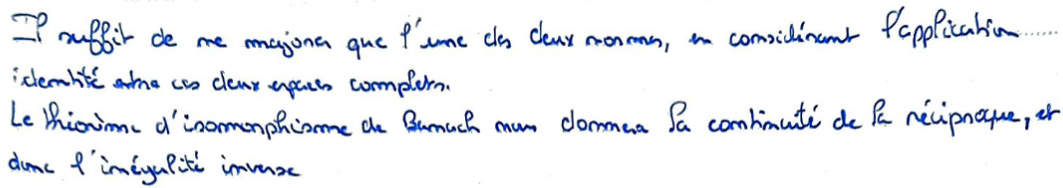 Il suffit de ne majorer que l'une des deux normes, en considérant l'application
identité entre ces deux espaces complets.
Le théorème d'isomorphisme de Banach nous donnera la continuité de la réciproque, et
donc l'inégalité inverse